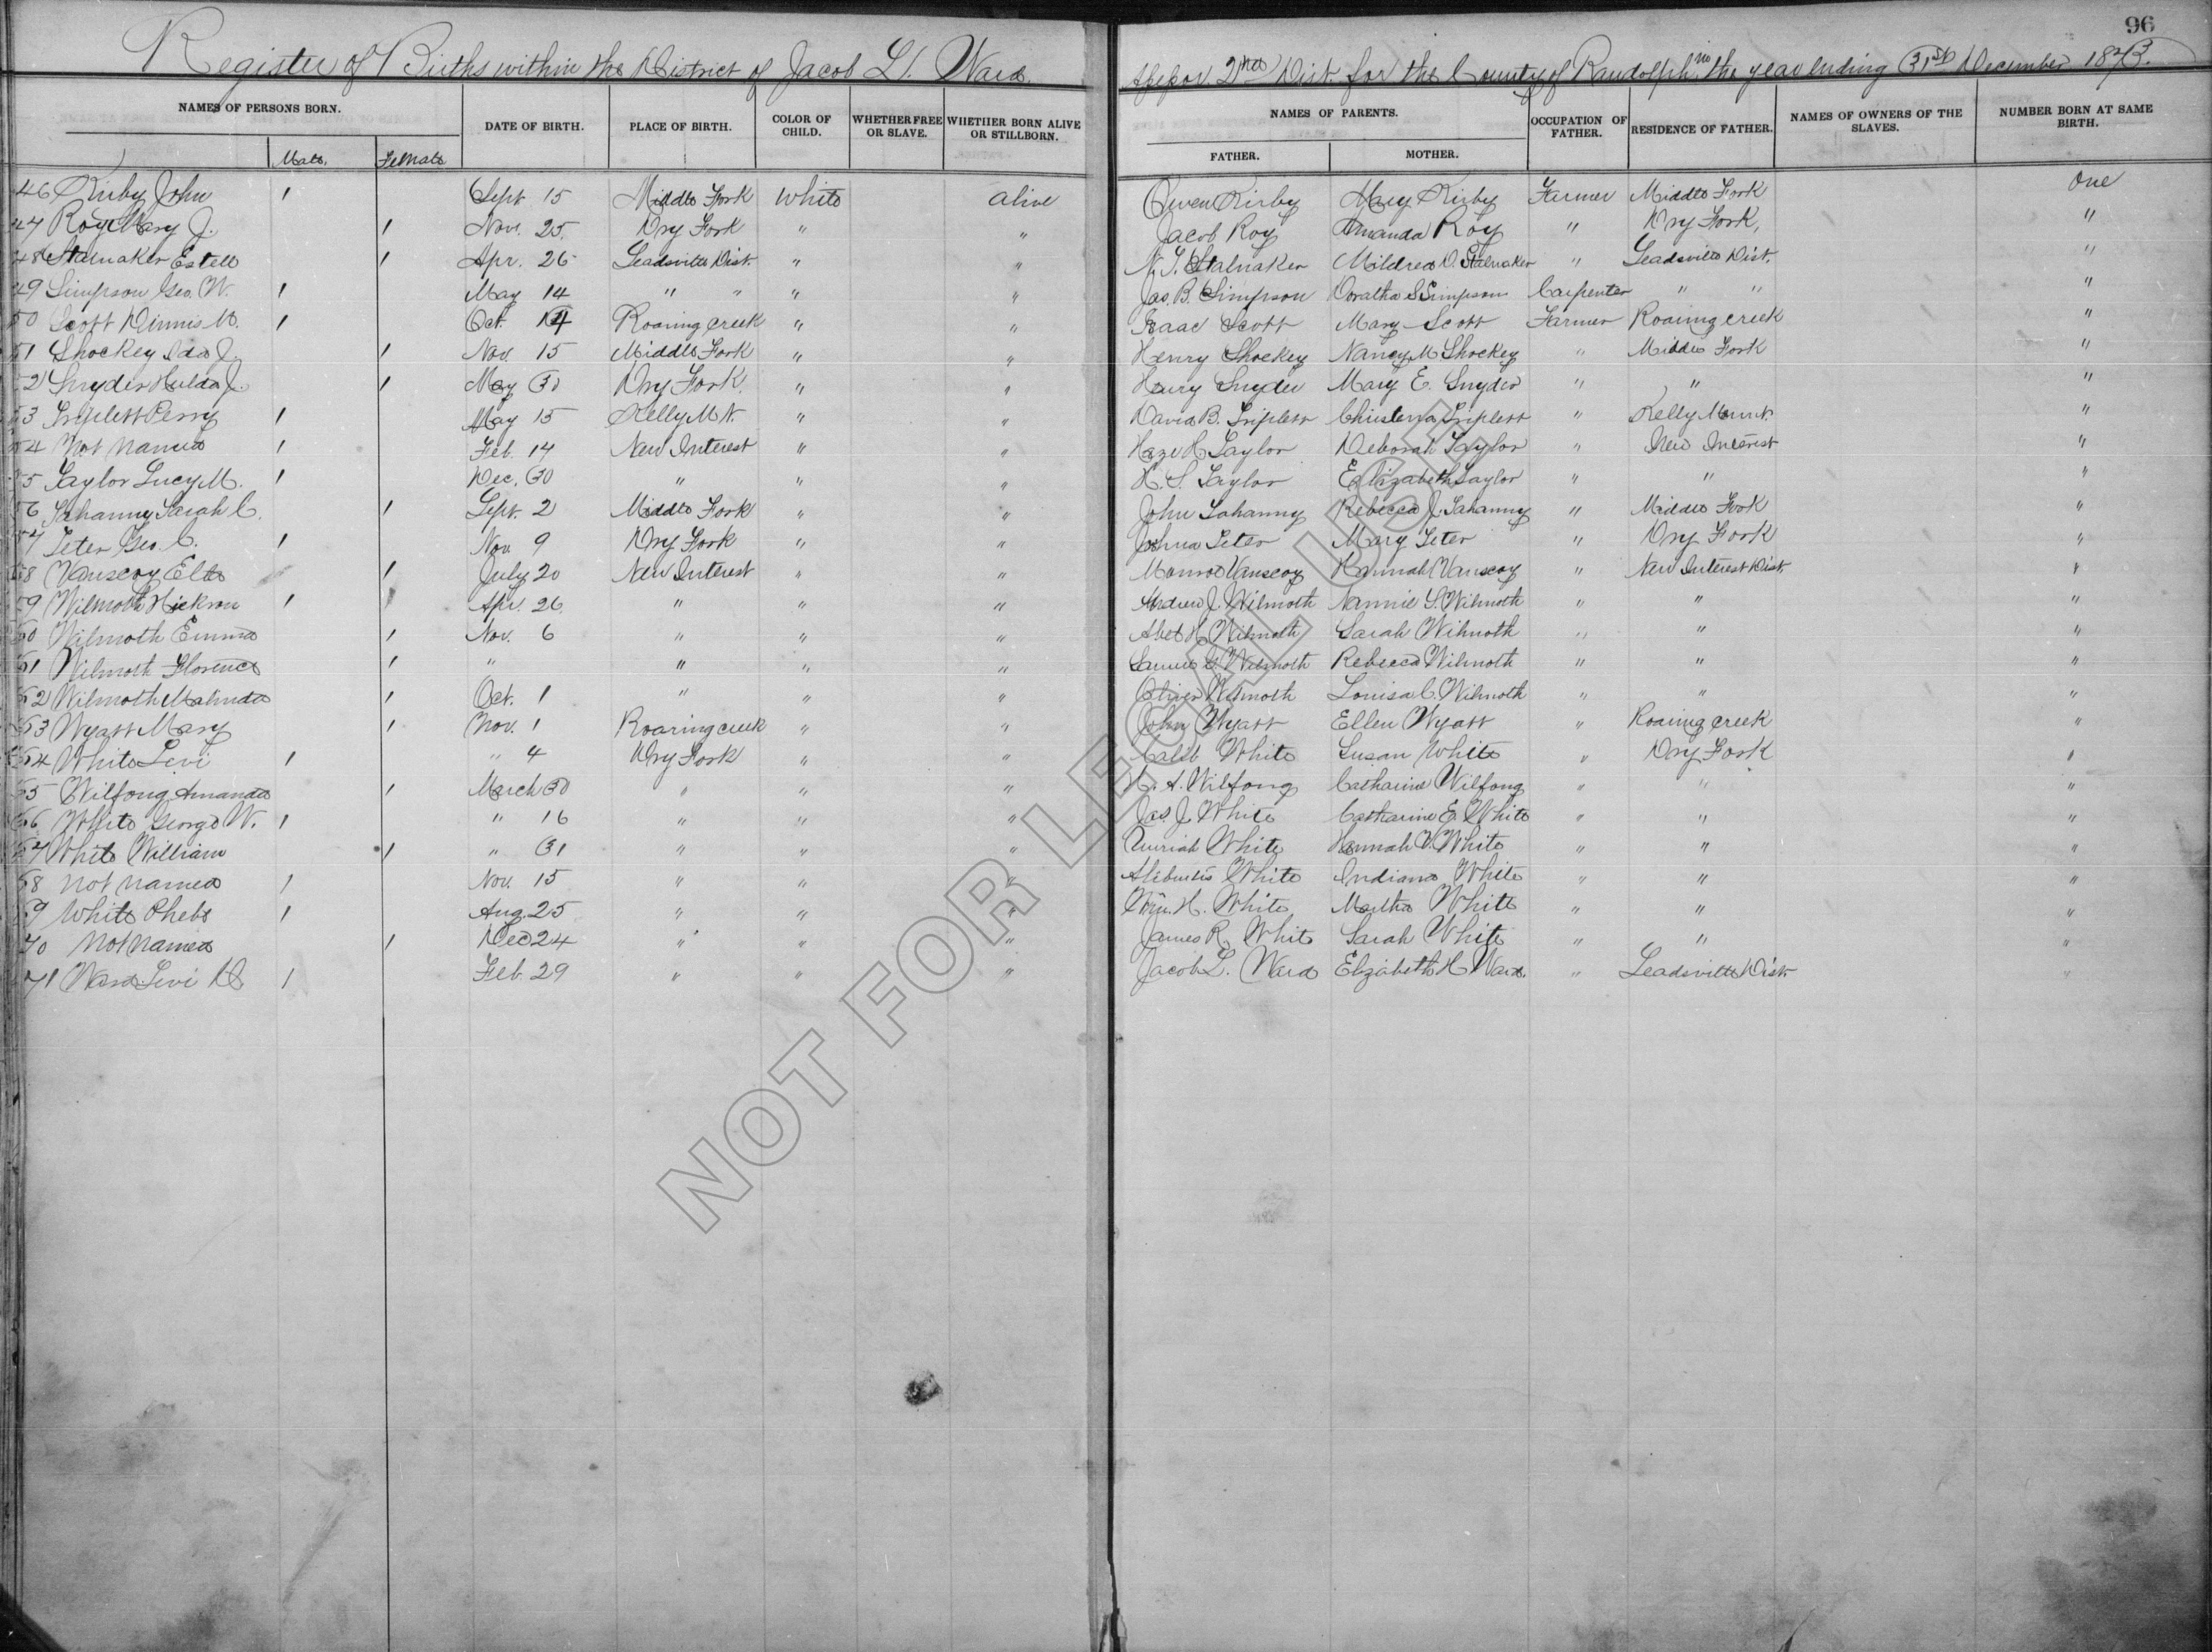 96
Register of Births within the District of Jacob L. Ward Assessor 2nd Dist. for the County of Randolph in the year ending 31st December 1873.
NAMES OF PERSONS BORN. DATE OF BIRTH. PLACE OF BIRTH. COLOR OF CHILD. WHETHER FREE OR SLAVE. WHETHER BORN ALIVE OR STILLBORN. NAMES OF PARENTS. OCCUPATION OF FATHER. RESIDENCE OF FATHER. NAMES OF OWNERS OF THE SLAVES. NUMBER BORN AT SAME BIRTH.
Male. Female FATHER. MOTHER.
46 Kirby John 1 Sept 15 Middle Fork White Alive Owen Kirby Mary Kirby Farmer Middle Fork One
47 Roy Mary J. 1 Nov. 25 Dry Fork " " Jacob Roy Amanda Roy " Dry Fork, "
48 Stalnaker Estell 1 Apr. 26 Leadsville Dist. " " N. T. Stalnaker Mildred D. Stalnaker " Leadsville Dist. "
49 Simpson Geo. W. 1 May 14 " " " " Jas. B. Simpson Doratha S Simpson Carpenter " " "
50 Scott Dinnis M. 1 Oct. 14 Roaring creek " " Isaac Scott Mary Scott Farmer Roaring creek "
51 Shockey Ida J. 1 Nov. 15 Middle Fork " " Henry Shockey Nancy M Shockey " Middle Fork "
52 Snyder Hulda J. 1 May 30 Dry Fork " " Henry Snyder Mary E. Snyder " " "
53 Triplett Perry 1 May 15 Kelly Mt. " " David B. Triplett Christena Triplett " Kelly Mount. "
54 Not Named 1 Feb. 14 New Interest " " Haze H Taylor Deborah Taylor " New Interest "
55 Taylor Lucy M. 1 Dec. 30 " " " H. S. Taylor Elizabeth Taylor " " "
56 Tahanny Sarah C. 1 Sept. 2 Middle Fork " " John Tahanny Rebecca J. Tahanny " Middle Fork "
57 Teter Geo. C. 1 Nov. 9 Dry Fork " " Joshua Teter Mary Teter " Dry Fork "
58 Vanscoy Ella 1 July 20 New Interest " " Monroe Vanscoy Hannah Vanscoy " New Interest Dist. "
59 Wilmoth Hickson 1 Apr. 26 " " " Andrew J. Wilmoth Nannie Y. Wilmoth " " "
60 Wilmoth Emma 1 Nov. 6 " " " Abel H. Wilmoth Sarah Wilmoth " " "
61 Wilmoth Florence 1 " " " " Samuel Wilmoth Rebecca Wilmoth " " "
62 Wilmoth Malinda 1 Oct. 1 " " " Oliver Wilmoth Louisa C. Wilmoth " " "
63 Wyatt Mary 1 Nov. 1 Roaring creek " " John Wyatt Ellen Wyatt " Roaring creek "
64 White Levi 1 " 4 Dry Fork " " Caleb White Susan White " Dry Fork "
65 Wilfong Amanda 1 March 30 " " " A. Wilfong Catharine Wilfong " " "
66 White George W. 1 " 16 " " " Jas. J. White Catharine E. White " " "
67 White William 1 " 31 " " " White Hannah V. White " " "
68 Not Named 1 Nov. 15 " " " White Indiana White " " "
69 White Phebe 1 Aug. 25 " " " Wm. H. White Martha White " " "
70 Not Named 1 Dec 24 " " " James R. White Sarah White " " "
71 Ward Levi D 1 Feb 29 " " " Jacob L. Ward Elizabeth H Ward. " Leadsville Dist "
NOT FOR LEGAL USE